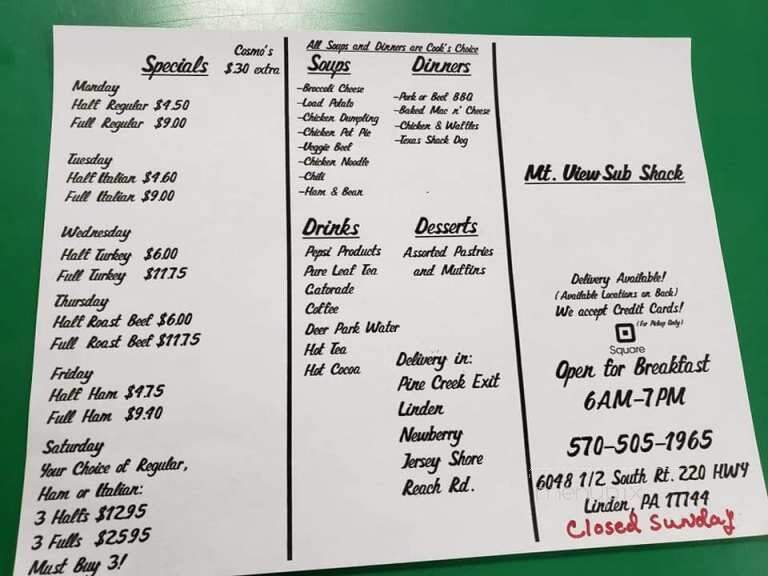 Specials
Cosmo's
$.30 extra
Monday
Half Regular $4.50
Full Regular $9.00
Tuesday
Half Italian $4.60
Full Italian $9.00
Wednesday
Half Turkey $6.00
Full Turkey $11.75
Thursday
Half Roast Beef $6.00
Full Roast Beef $11.75
Friday
Half Ham $4.75
Full Ham $9.40
Saturday
Your Choice of Regular,
Ham or Italian:
3 Halfs $12.95
3 Fulls $25.95
Must Buy 3!
All Soups and Dinners are Cook's Choice
Soups
-Broccoli Cheese
-Load Potato
-Chicken Dumpling
-Chicken Pot Pie
-Veggie Beef
-Chicken Noodle
-Chili
-Ham & Bean
Dinners
-Pork or Beef BBQ
-Baked Mac n' Cheese
-Chicken & Waffles
-Texas Shack Dog
Drinks
Pepsi Products
Pure Leaf Tea
Gatorade
Coffee
Deer Park Water
Hot Tea
Hot Cocoa
Desserts
Assorted Pastries
and Muffins
Delivery in:
Pine Creek Exit
Linden
Newberry
Jersey Shore
Reach Rd.
Mt. View Sub Shack
Delivery Available!
(Available Locations on Back)
We accept Credit Cards!
(for Pickup Only)
Square
Open for Breakfast
6AM-7PM
570-505-1965
6048 1/2 South Rt. 220 HWY
Linden, PA 17744
Closed Sunday